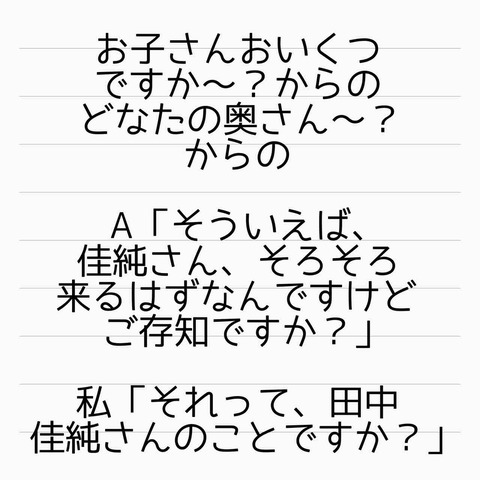 お子さんおいくつ
ですか〜？からの
どなたの奥さん〜？
からの
A「そういえば、
佳純さん、そろそろ
来るはずなんですけど
ご存知ですか？」
私「それって、田中
佳純さんのことですか？」